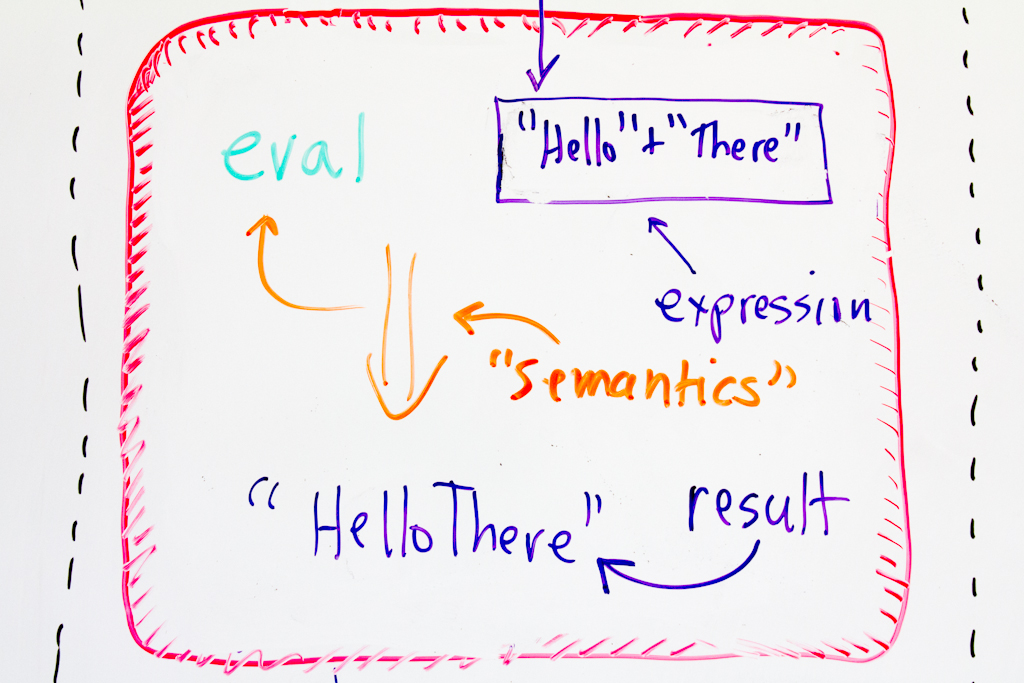 eval
"Hello"+"There"
expression
"Semantics"
"HelloThere"
result